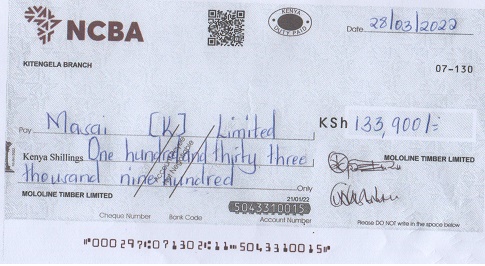 NCBA
KENYA
DUTY PAID
Date 28/03/2022
KITENGELA BRANCH
07-130
Pay Masai [K] Limited KSh 133,900/=
Kenya Shillings One hundred and thirty three
thousand nine hundred Only
MOLOLINE TIMBER LIMITED
MOLOLINE TIMBER LIMITED
21/01/22
5043310015
Cheque Number Bank Code Account Number
Please DO NOT write in the space below
"000297C07130211" 5043310015"